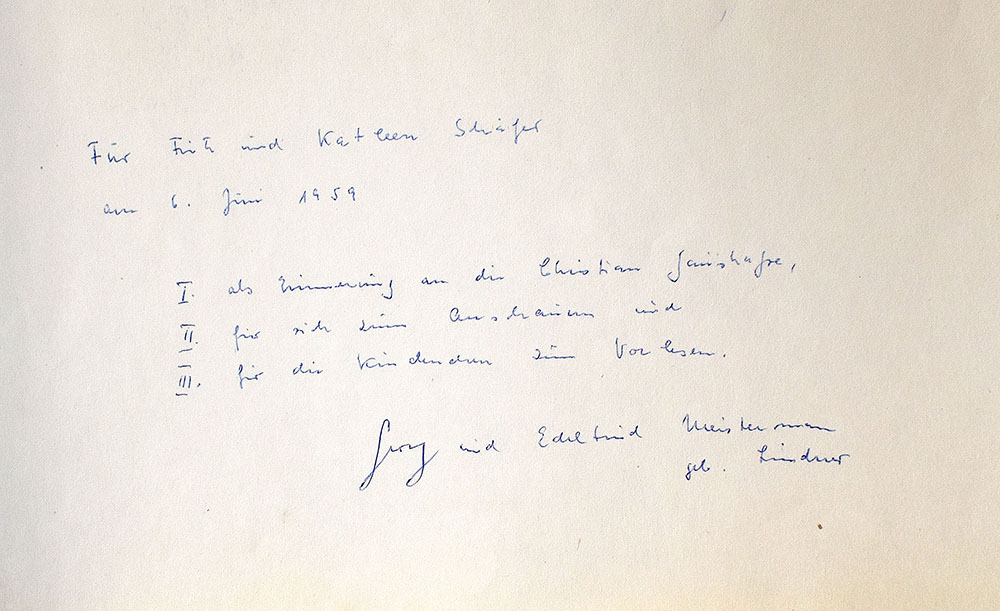 Für Fritz und Katleen Schäfer
am 6. Juni 1959
I. als Erinnerung an die Christian
II. für sich zum Anschauen und
III. für die zum Vorlesen.
Georg und Edeltrud Meistermann
geb. Lindner